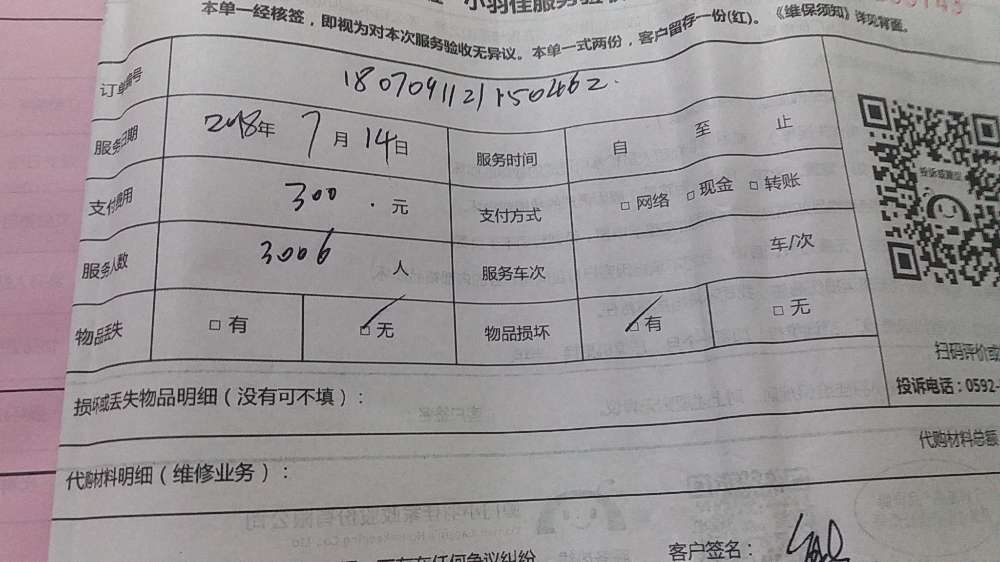 小羽佳服务验收
本单一经核签，即视为对本次服务验收无异议。本单一式两份，客户留存一份(红)。《维保须知》详见背面。
订单编号 180709112115０462
服务日期 2018年 7月 14日 服务时间 自 至 止
支付费用 300.元 支付方式 □ 网络 □ 现金 □ 转账
服务人数 3006 人 服务车次 车/次
物品丢失 □ 有 □ 无 物品损坏 □ 有 □ 无
投诉或建议
扫码评价或
投诉电话：0592-
损坏或丢失物品明细（没有可不填）：
代购材料总额
代购材料明细（维修业务）：
客户签名：
存在任何争议纠纷